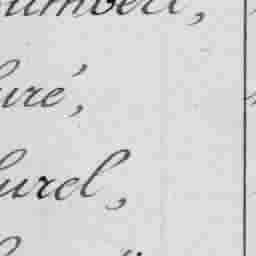 umbert,
uré,
urel,